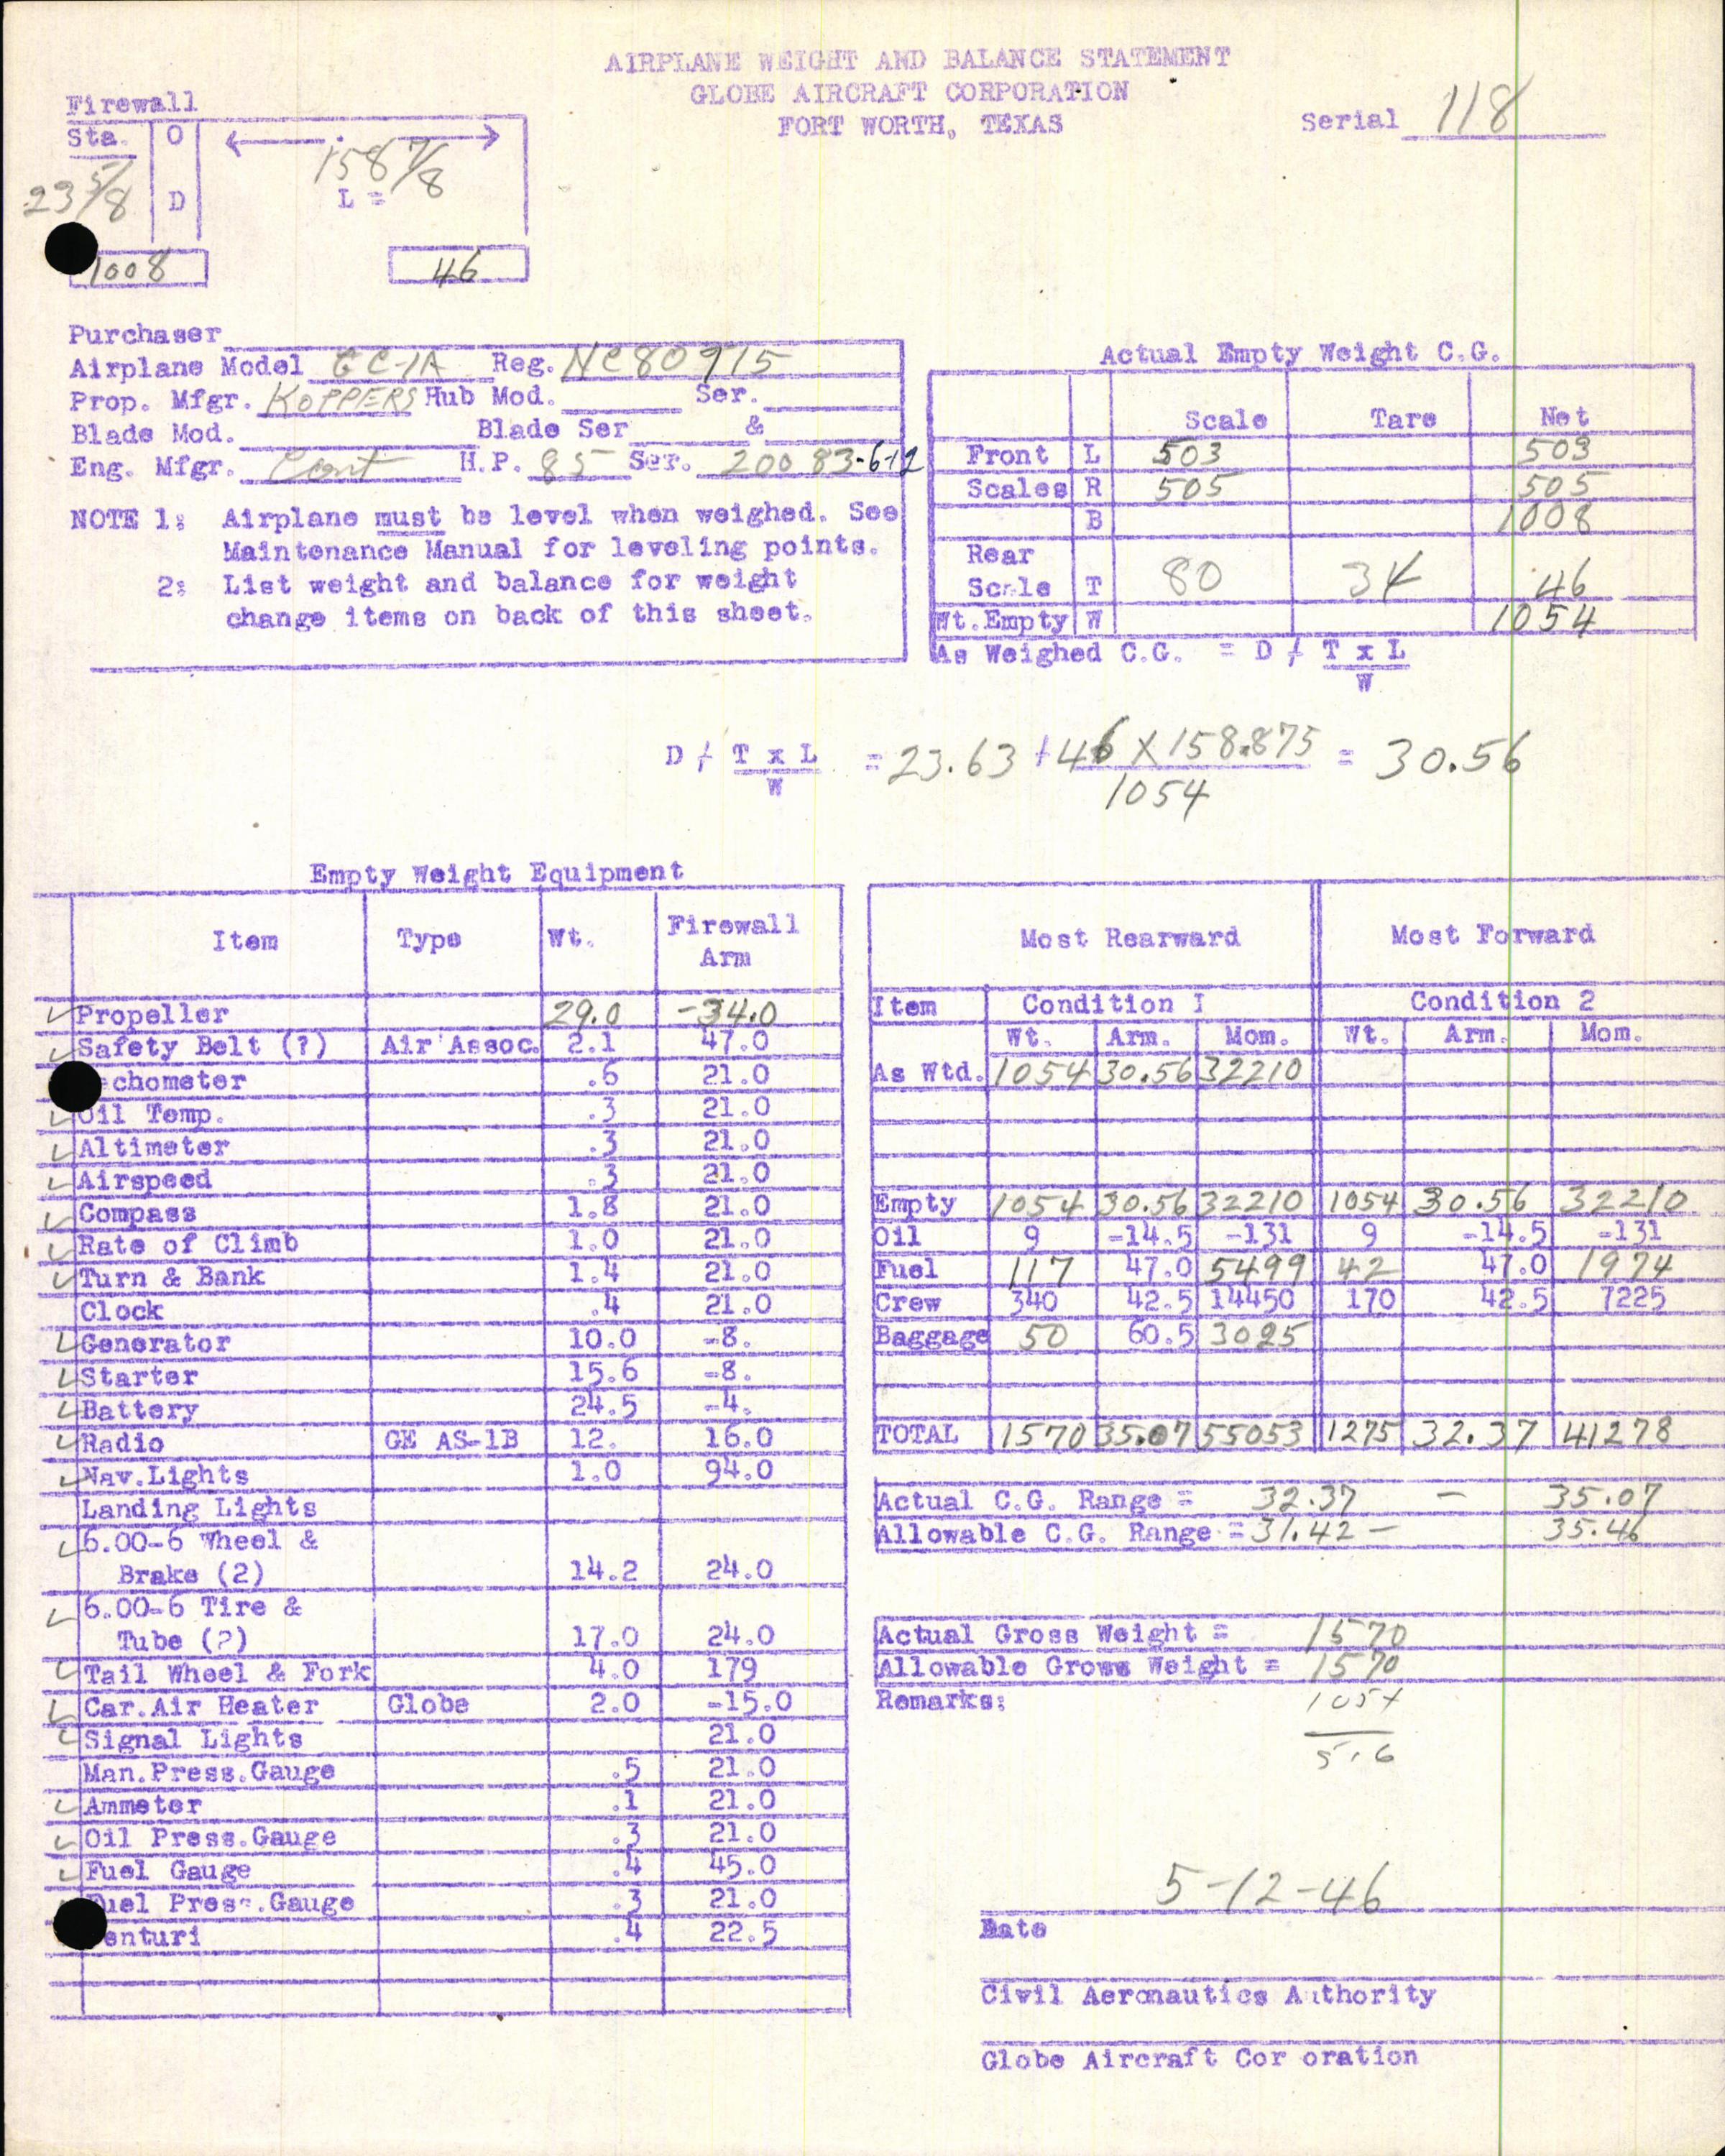 AIRPLANE WEIGHT AND BALANCE STATEMENT
GLOBE AIRCRAFT CORPORATION
FORT WORTH, TEXAS
Serial 118
Firewall
Sta. O
23 5/8 D
158 7/8
L =
1008 46
Purchaser
Airplane Model GC-1A Reg. NC80915
Prop. Mfgr. KOPPERS Hub Mod. Ser.
Blade Mod. Blade Ser &
Eng. Mfgr. Cont H.P. 85 Ser. 20083-6-12
NOTE 1: Airplane must be level when weighed. See
Maintenance Manual for leveling points.
2: List weight and balance for weight
change items on back of this sheet.
Actual Empty Weight C.G.
Scale Tare Net
Front L 503 503
Scales R 505 505
B 1008
Rear
Scale T 80 34 46
Wt.Empty W 1054
As Weighed C.G. = D + T x L
W
D + T x L = 23.63 + 46 X 158.875 = 30.56
W 1054
Empty Weight Equipment
Item Type Wt. Firewall
Arm
Propeller 29.0 -34.0
Safety Belt (?) Air Assoc. 2.1 47.0
chometer .6 21.0
Oil Temp. .3 21.0
Altimeter .3 21.0
Airspeed .3 21.0
Compass 1.8 21.0
Rate of Climb 1.0 21.0
Turn & Bank 1.4 21.0
Clock .4 21.0
Generator 10.0 -8.
Starter 15.6 -8.
Battery 24.5 -4.
Radio GE AS-1B 12. 16.0
Nav.Lights 1.0 94.0
Landing Lights
6.00-6 Wheel &
Brake (2) 14.2 24.0
6.00-6 Tire &
Tube (?) 17.0 24.0
Tail Wheel & Fork 4.0 179
Car.Air Heater Globe 2.0 -15.0
Signal Lights 21.0
Man.Press.Gauge .5 21.0
Ammeter .1 21.0
Oil Press.Gauge .3 21.0
Fuel Gauge .4 45.0
uel Press.Gauge .3 21.0
enturi .4 22.5
Most Rearward Most Forward
Item Condition I Condition 2
Wt. Arm. Mom. Wt. Arm. Mom.
As Wtd. 1054 30.56 32210
Empty 1054 30.56 32210 1054 30.56 32210
Oil 9 -14.5 -131 9 -14.5 -131
Fuel 117 47.0 5499 42 47.0 1974
Crew 340 42.5 14450 170 42.5 7225
Baggage 50 60.5 3025
TOTAL 1570 35.07 55053 1275 32.37 41278
Actual C.G. Range = 32.37 - 35.07
Allowable C.G. Range = 31.42 - 35.46
Actual Gross Weight = 1570
Allowable Gross Weight = 1570
Remarks: 1054
516
5-12-46
Date
Civil Aeronautics A thority
Globe Aircraft Cor oration